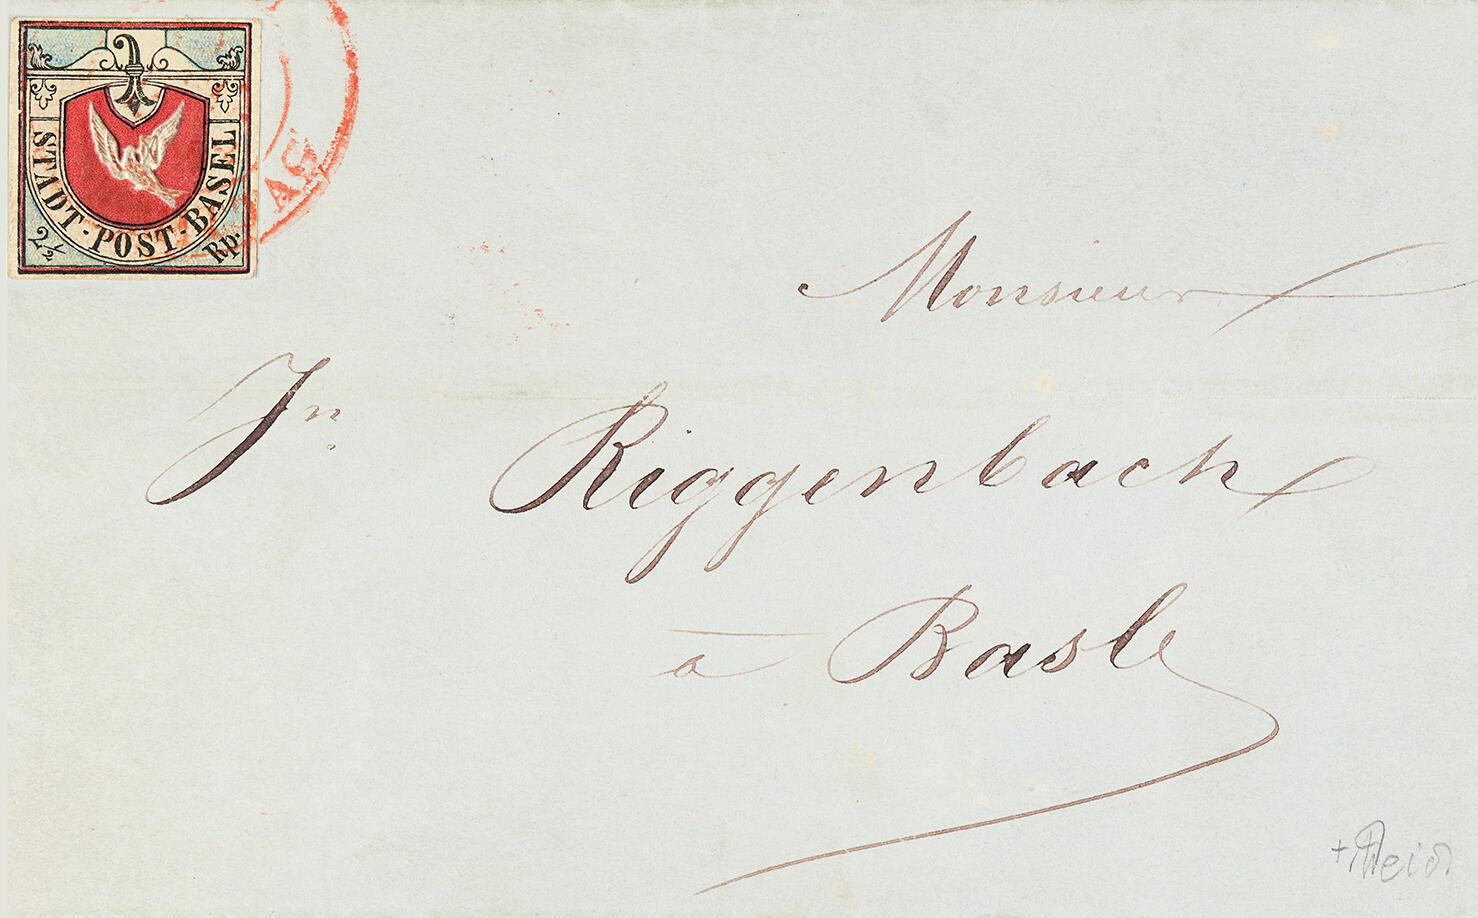 STADT-POST-BASEL
2½ Rp.
AG
Monsieur
Jn. Riggenbach
à Basle